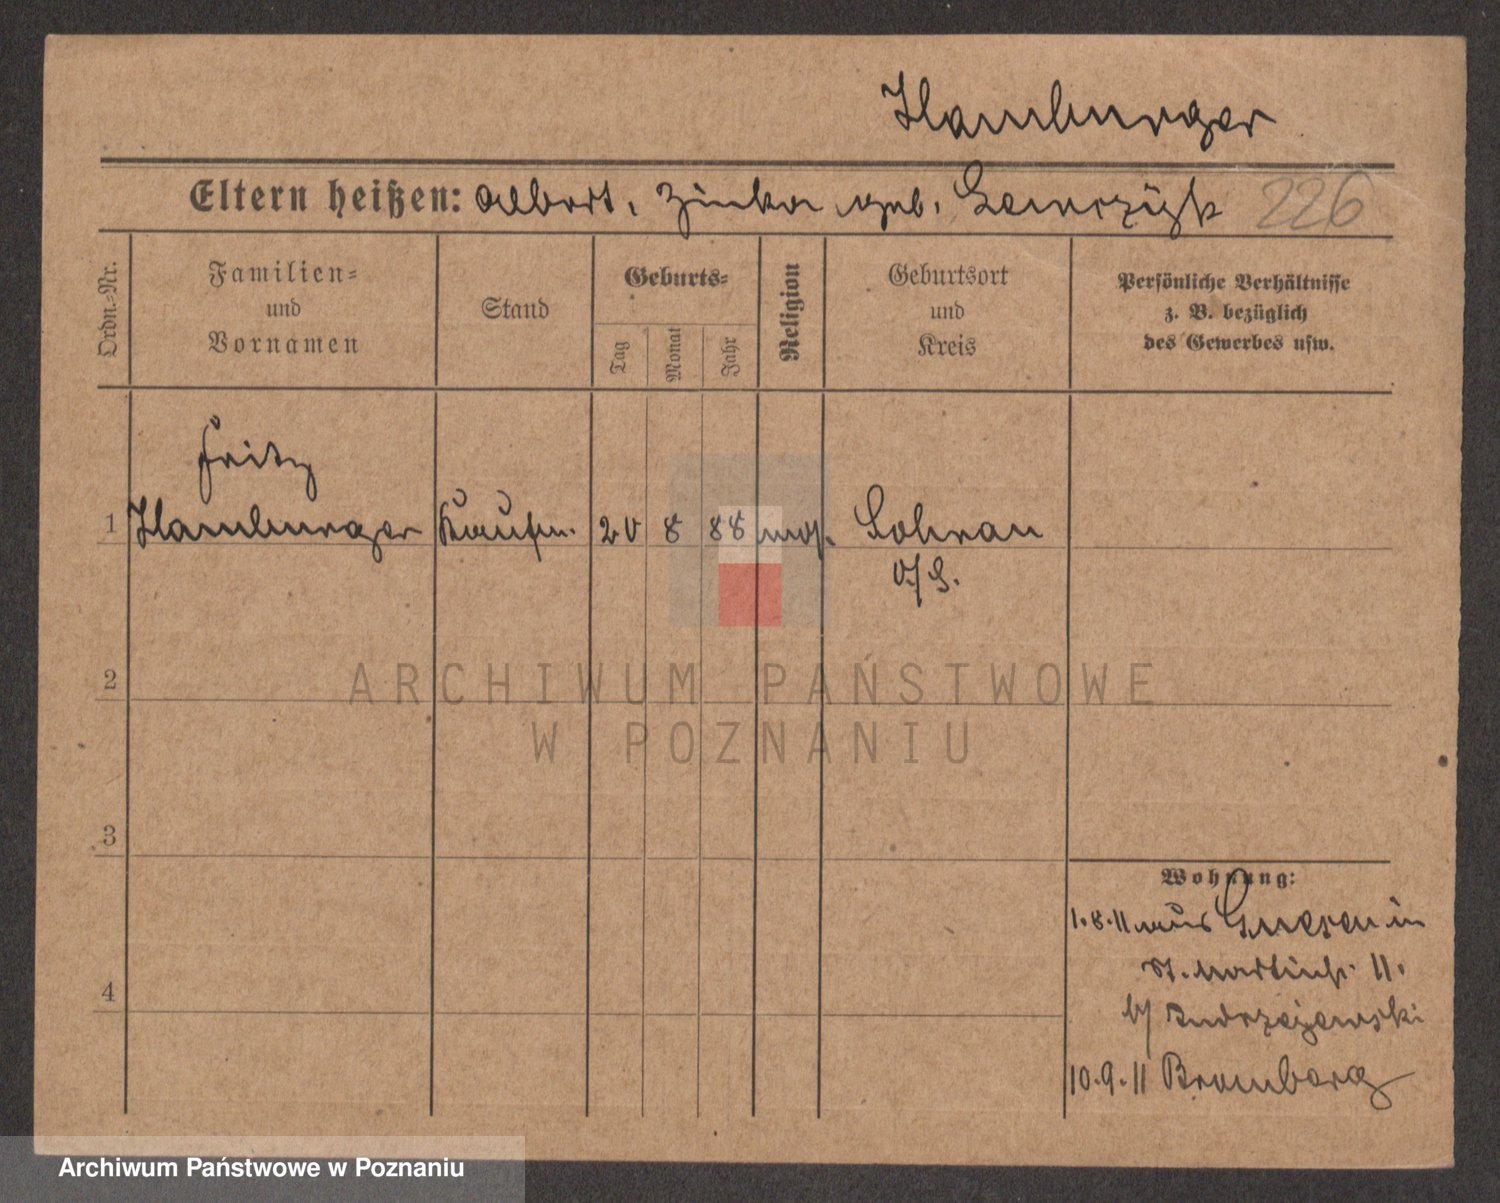 Hamburger
Eltern heißen: Albert, Zinka geb. 226
Ordn.-Nr.
Familien-
und
Vornamen
Stand
Geburts-
Tag
Monat
Jahr
Religion
Geburtsort
und
Kreis
Persönliche Verhältnisse
z. B. bezüglich
des Gewerbes usw.
Fritz
1 Hamburger Kaufm. 20 8 88 mos. Sohrau
O/S.
ARCHIWUM PAŃSTWOWE
2
W POZNANIU
3
Wohnung:
1.8.11 aus Gnesen in
St. Martinstr. 11.
4
b/ Andrzejewski
10.9.11 Bromberg
Archiwum Państwowe w Poznaniu